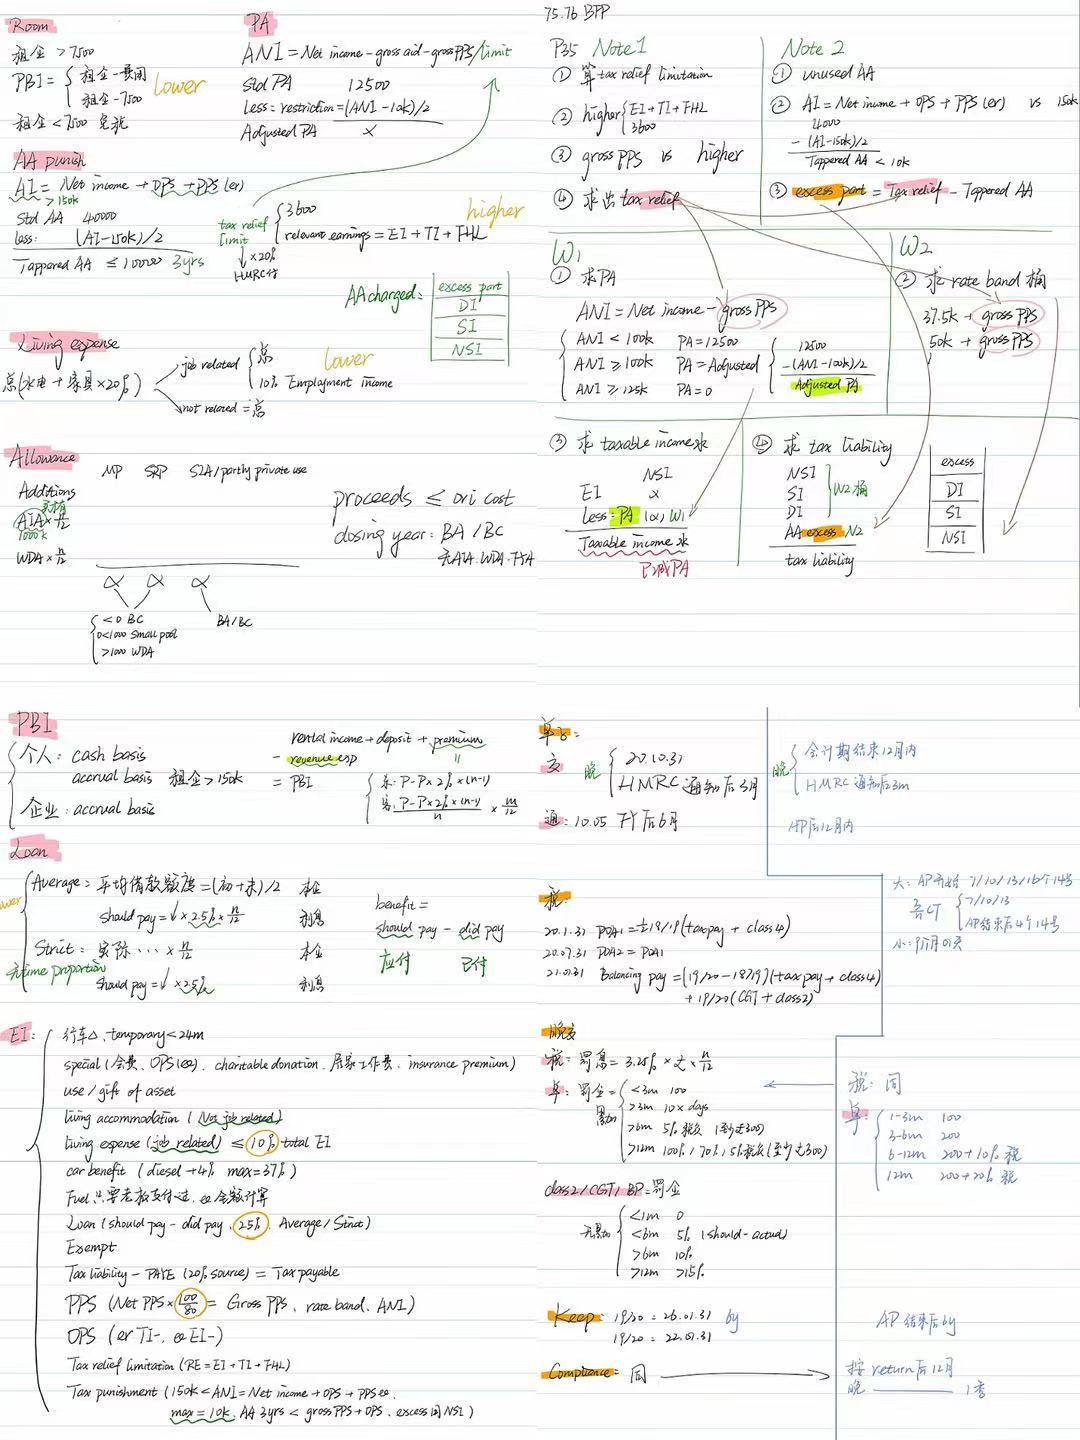 Room
租金 > 7500
PBI = 租金-费用
租金-7500
lower
租金 < 7500 免税
PA
ANI = Net income - gross aid - gross PPS/limit
Std PA 12500
Less: restriction = (ANI - 10k)/2
Adjusted PA x
AA punish
AI = Net income + OPS + PPS (er)
> 150k
Std AA 40000
Less: (AI-150k)/2
Tappered AA ≤ 10000 3yrs
tax relief limit
3600
relevant earnings = EI + TI + FHL
higher
↓ ×20%
HMRC付
AA charged:
excess part
DI
SI
NSI
Living expense
总(水电 + 家具×20%)
job related
总
10% Employment income
lower
not related = 总
Allowance
MP SRP SLA/partly private use
Additions
AIA × n/12
1000k
WDA × n/12
proceeds ≤ ori cost
closing year: BA/BC
无AIA. WDA. FYA
<0 BC
0<1000 small pool
>1000 WDA
BA/BC
75.76 BPP
P35 Note 1
① 算 tax relief limitation
② higher EI + TI + FHL
3600
③ gross PPS vs higher
④ 求出 tax relief
Note 2
① unused AA
② AI = Net income + OPS + PPS (er) vs 150k
4000
- (AI-150k)/2
Tappered AA < 10k
③ excess part = Tax relief - Tappered AA
W1
① 求PA
ANI = Net income - gross PPS
ANI < 100k PA = 12500
ANI ≥ 100k PA = Adjusted
ANI ≥ 125k PA = 0
12500
-(ANI-100k)/2
Adjusted PA
W2
② 求 rate band 桶
37.5k + gross PPS
50k + gross PPS
③ 求 taxable income 水
NSI
EI x
Less: PA (x) W1
Taxable income 水
已减PA
④ 求 tax liability
NSI
SI
DI
W2 桶
AA excess N2
tax liability
excess
DI
SI
NSI
PBI
个人: cash basis
accrual basis 租金 > 150k
企业: accrual basis
rental income + deposit + premium
- revenue exp
= PBI
P-P×2%×(n-1)
P-P×2%×(n-1)
n
× m/12
Loan
Average: 平均借款额度 = (初+末)/2 本金
should pay = ↓ × 2.5% × n/12 利息
Strict: 实际 ··· × n/12 本金
无time proportion
should pay = ↓ × 2.5% 利息
benefit =
should pay - did pay
应付 已付
EI:
行车△. temporary < 24m
special (会费、OPS(ee)、charitable donation、居家工作费、insurance premium)
use / gift of asset
living accommodation (Not job related)
living expense (job related) ≤ 10% total EI
car benefit (diesel +4% max=37%)
Fuel 只要老板支付过. ee 全额计算
Loan (should pay - did pay. 2.5%. Average/Strict)
Exempt
Tax liability - PAYE (20% source) = Tax payable
PPS (Net PPS × 100/80 = Gross PPS、rate band、ANI)
OPS (er TI-、ee EI-)
Tax relief limitation (RE = EI + TI + FHL)
Tax punishment (150k < ANI = Net income + OPS + PPS ee.
max = 10k. AA 3yrs < gross PPS + OPS. excess 同 NSI)
交 晚
20.10.31
HMRC 通知后3月
通: 10.05 TY后6月
晚
会计期结束12月内
HMRC 通知后3m
AP后12月内
税:
20.1.31 POA1 = ½ 18/19 (tax pay + class4)
20.07.31 POA2 = POA1
21.01.31 Balancing pay = (19/20 - 18/19)(tax pay + class4)
+ 19/20 (CGT + class2)
大: AP开始 7/10/13/16个14号
7/10/13
AP结束后4个14号
小: 9个月01天
晚交
税: 罚息 = 3.25% × 亡 × n/12
单: 罚金 =
累加
<3m 100
>3m 10× days
>6m 5%税款 (至少300)
>12m 100%/70%/5%税款 (至少300)
class2/CGT/BP: 罚金
无累加
<1m 0
<6m 5% (should-actual)
>6m 10%
>12m >15%
税: 同
单:
1-3m 100
3-6m 200
6-12m 200+10%税
12m 200+20%税
Keep: 19/20 = 26.01.31 by
19/20 = 22.01.31
AP结束后6y
Compliance: 同
按 return后12月
晚